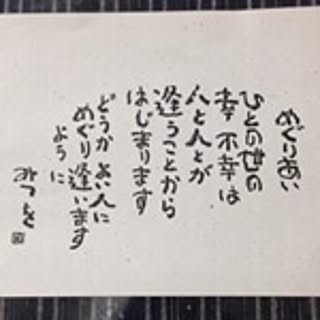 めぐりあい
ひとの世の
幸不幸は
人と人とが
逢うことから
はじまります
どうかよい人に
めぐり逢います
ように
みつを